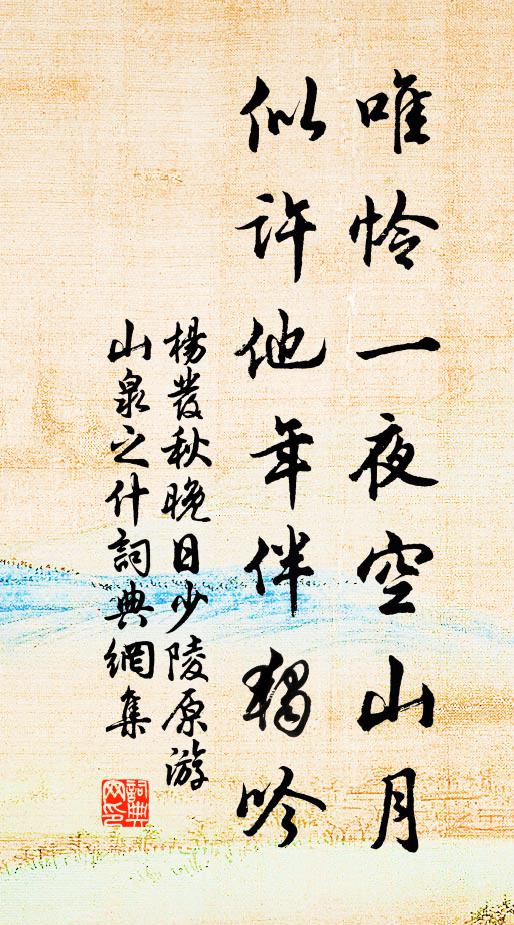 唯怜一夜空山月
似许他年伴獨吟
楊發秋晚日少陵原游
山泉之什詞典網集
詞典网印